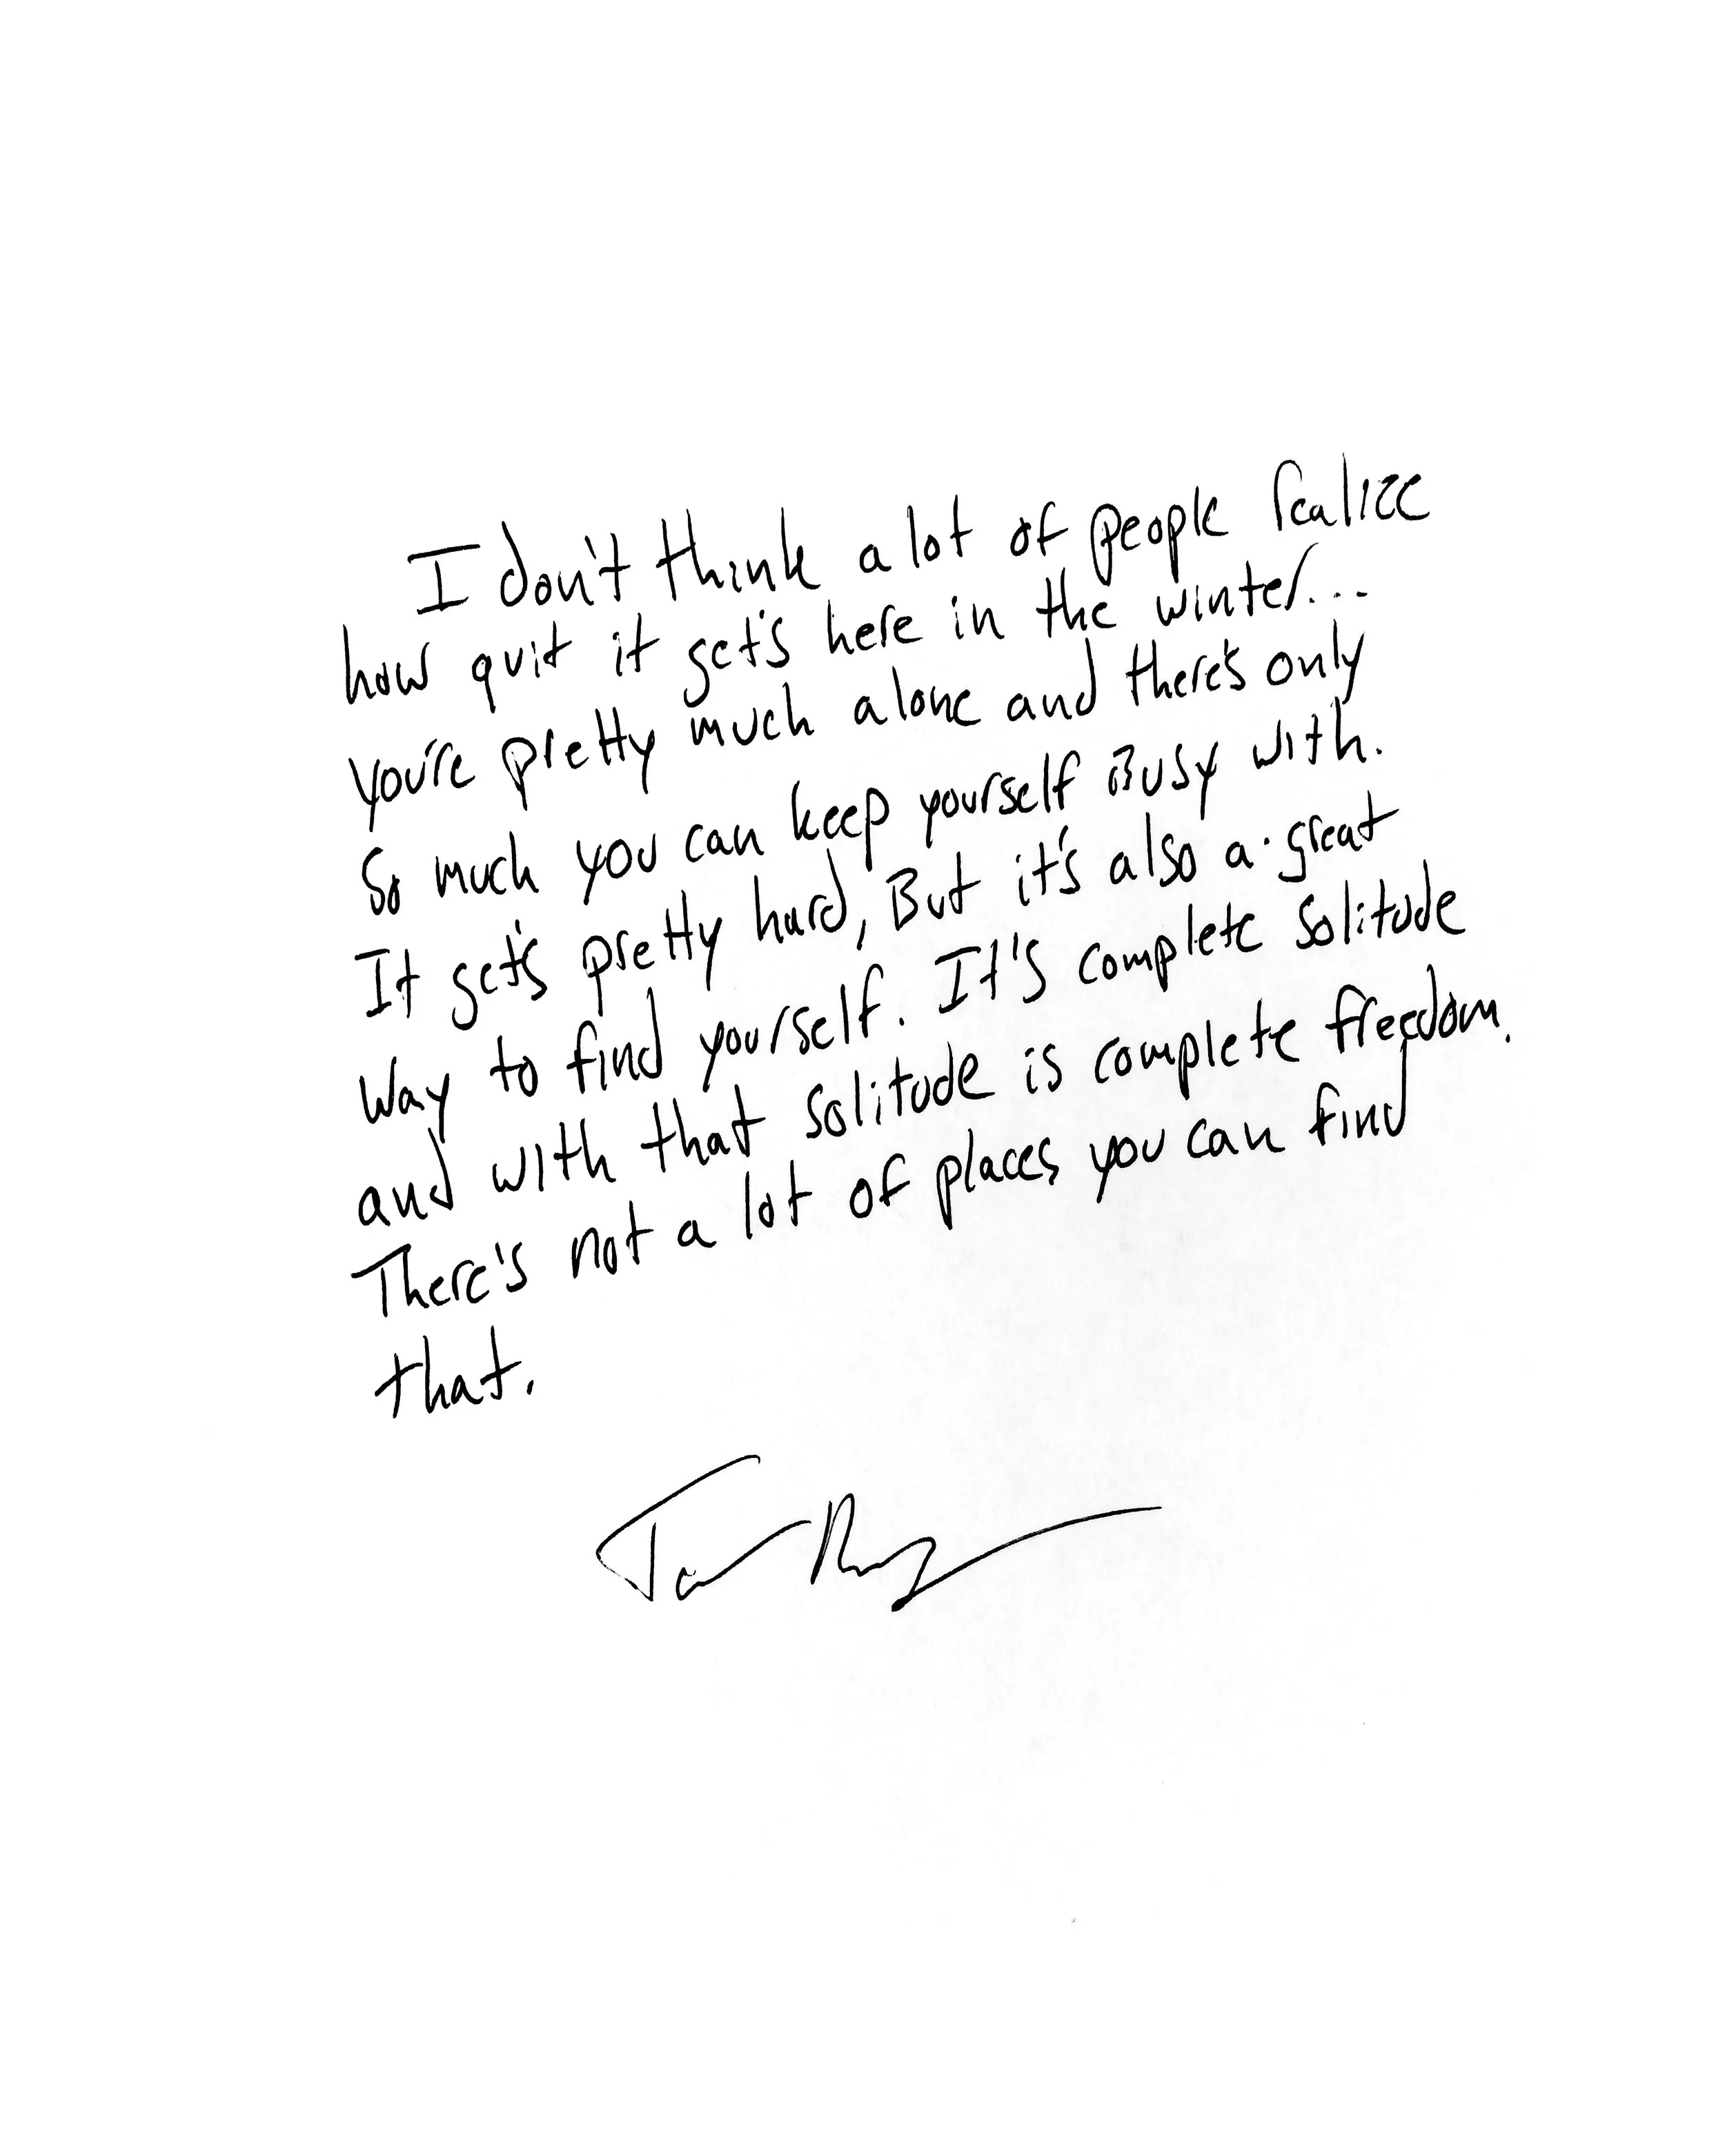 I don't think a lot of people realize
how quit it get's here in the winter...
you're pretty much alone and there's only
So much you can keep yourself Busy with.
It get's pretty hard, But it's also a great
Way to find yourself. It's complete solitude
and with that solitude is complete freedom.
There's not a lot of places you can find
that.